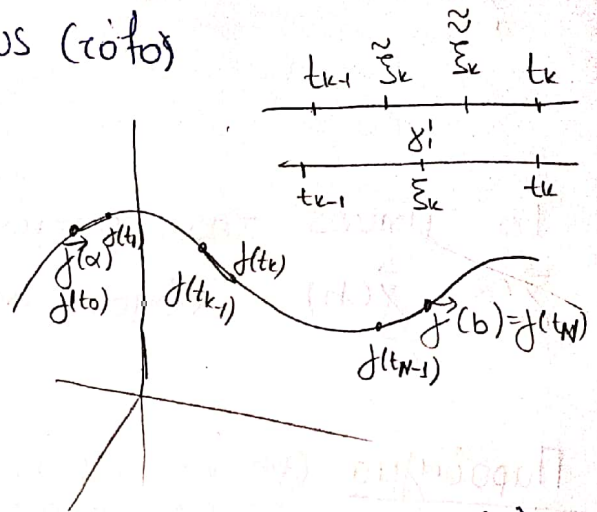 us (τόξο)
t_{k-1} ξ̃_k ξ̃̃_k t_k
γ'_i
t_{k-1} ξ_k t_k
γ(t_1)
γ(α)
γ(t_0)
γ(t_{k-1}) γ(t_k)
γ(b)=γ(t_N)
γ(t_{N-1})